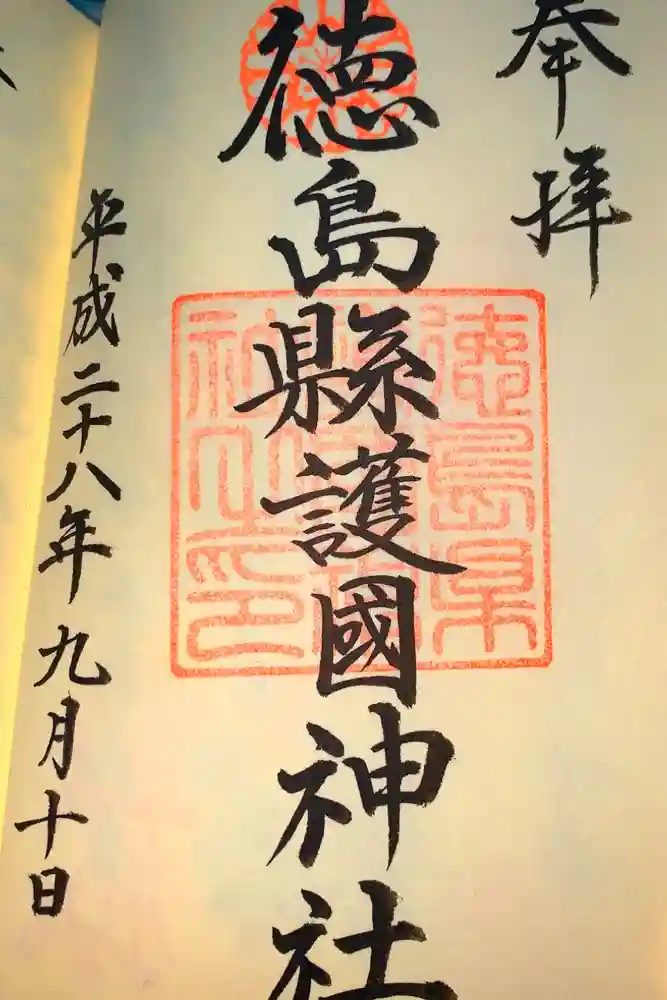 奉拝
徳島縣護國神社
徳島県護國神社印
平成二十八年九月十日